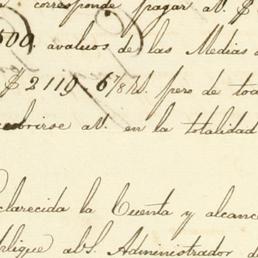 corresponde pagar al S. $
500, avaluos de las Medias
$ 2119.6 7/8 rs. pero de to
cubrirse al S. en la totalidad
clarecida la Cuenta y alcanc
plique al S. Administrador d